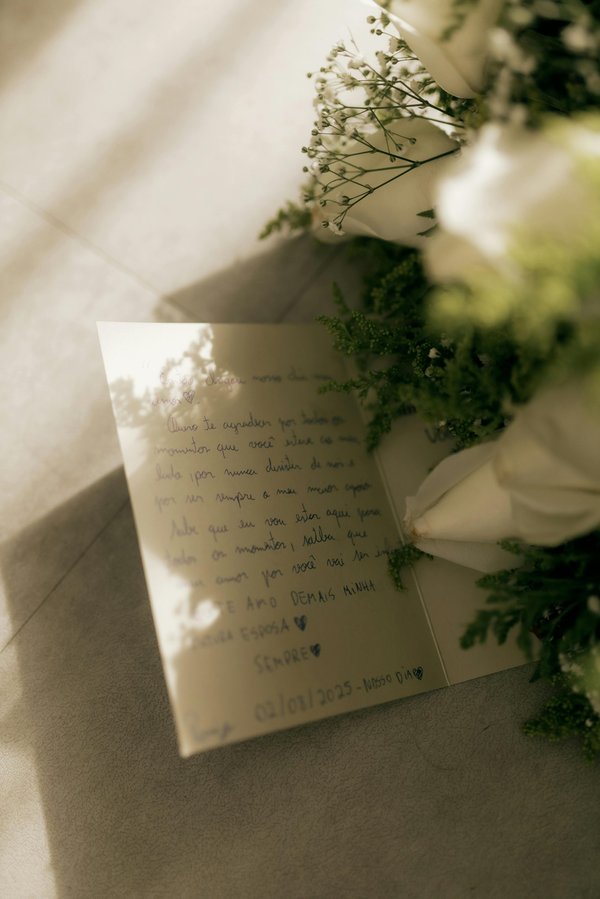 nosso dia meu
amor♡
Quero te agradecer por todos os
momentos que você esteve ao meu
lado, por nunca desistir de nós e
por ser sempre o meu maior apoio
Sabe que eu vou estar aqui para
todos os momentos, saiba que
amor por você vai ser
TE AMO DEMAIS MINHA
ESPOSA ♥
SEMPRE ♥
02/08/2025 - NOSSO DIA ♥